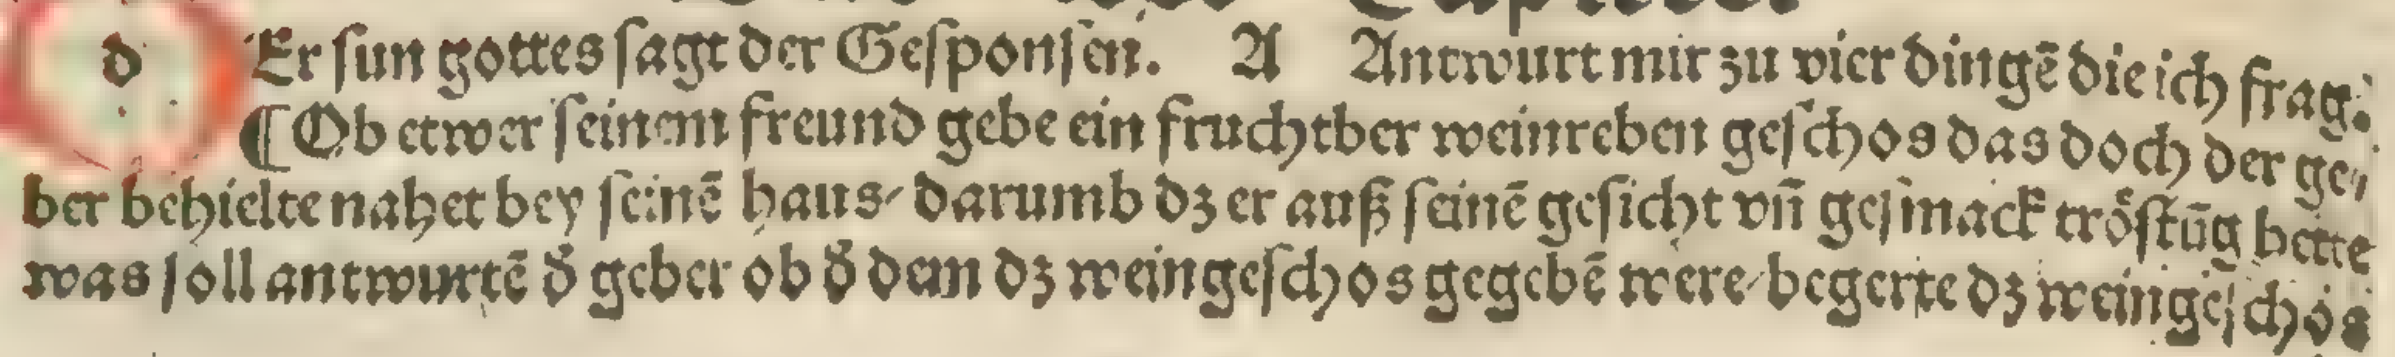 dEr ſun gottes ſagt der Geſponſen. A Antwurt mir zu vier dingē die ich frag.
¶ Ob etwer ſeinem freund gebe ein fruchtber weinreben geſchos das doch der ge⸗
ber behielte nahet bey ſeinē haus/ darumb dz er auß ſeinē geſicht vn̄ geſmack tröſtūg hette
was ſoll antwurtē d̓ geber ob d̓ dem dz weingeſchos gegebē were/ begerte dz weingeſchos